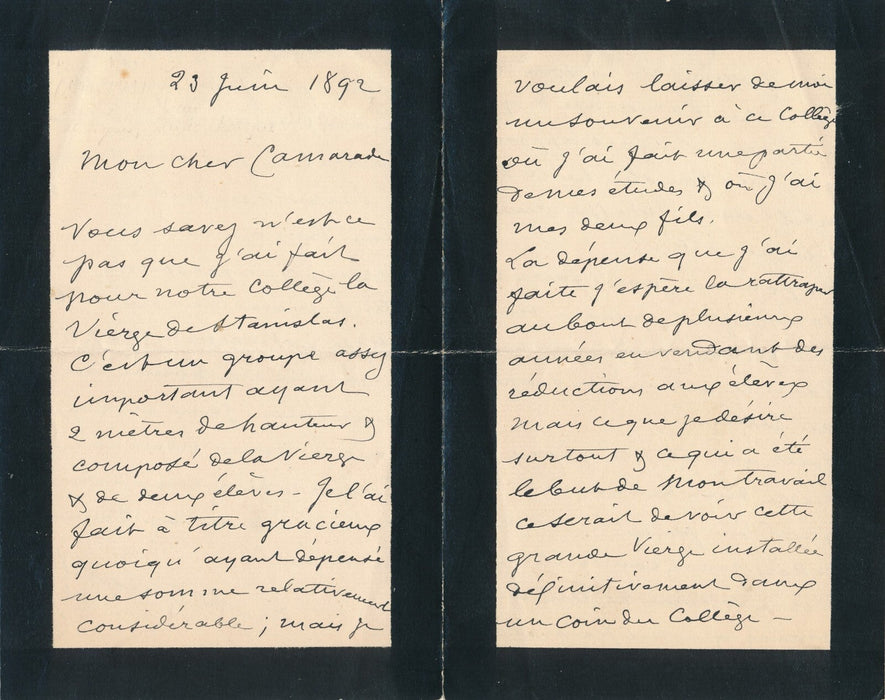 23 Juin 1892
Mon cher Camarade
Vous savez n'est ce
pas que j'ai fait
pour notre Collège la
Vierge de Stanislas.
C'est un groupe assez
important ayant
2 mètres de hauteur &
composé de la Vierge
& de deux élèves - Je l'ai
fait à titre gracieux
quoiqu'ayant dépensé
une somme relativement
considérable ; mais je
voulais laisser de moi
un souvenir à ce Collège
où j'ai fait une partie
de mes études & où j'ai
mes deux fils.
La dépense que j'ai
faite j'espère la rattraper
au bout de plusieurs
années en vendant des
réductions aux élèves
mais ce que je désire
surtout & ce qui a été
le but de mon travail
ce serait de voir cette
grande Vierge installée
définitivement dans
un coin du Collège -